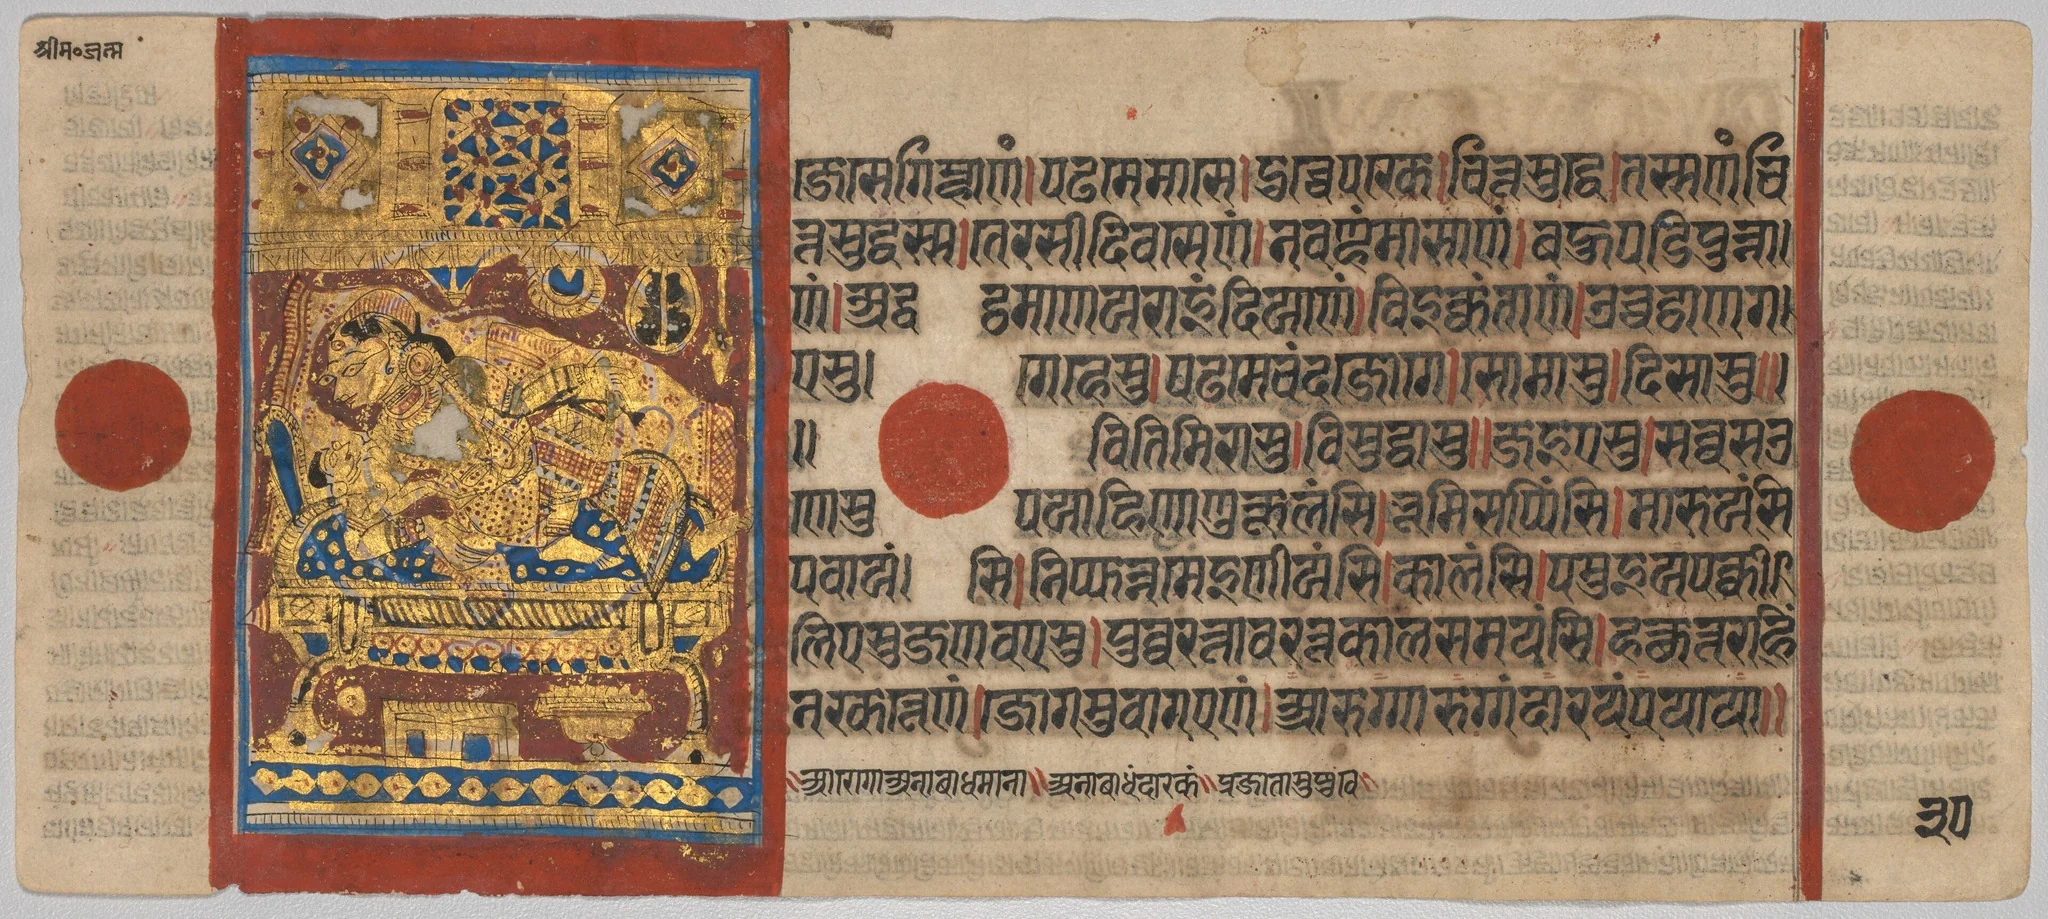 श्रीम॰जन्म
जे से गिम्हाणं । पढमे मासे । दोच्चे पक्खे । चित्तसुद्धे । तस्स णं चि
त्तसुद्धस्स । तेरसीदिवसेणं । नवण्हं मासाणं । बहुपडिपुन्ना
णं । अद्धट्ठमाणयराइंदियाणं । विइक्कंताणं । उच्चट्ठाणग
एसु गहेसु । पढमे चंदजोगे । सोमासु । दिसासु ॥
॥ वितिमिरासु । विसुद्धासु ॥ जइएसु । सव्वसउ
णेसु पयाहिणाणुकूलंसि । भूमिसप्पिंसि । मारुयंसि
पवायंसि । निप्फन्नमेइणीयंसि । कालंसि । पमुइयपक्की
लिएसु जणवएसु । पुव्वरत्तावरत्तकालसमयंसि । हत्थुत्तराहिं
नक्खत्तेणं । जोगमुवागएणं । आरुग्गारुग्गं दारयं पयाया ॥
॥ आरोगा अनाबाधमाना ॥ अनाबाधं दारकं ॥ प्रजाता सुषुवे
३०